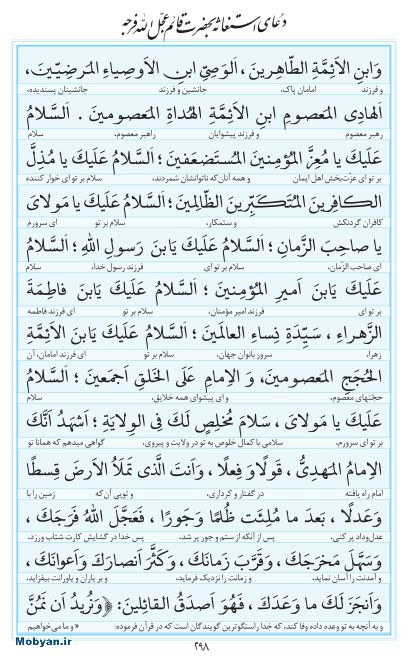 دعای استغاثه بحضرت قائم عجّل الله فرجه
وَابنِ الاَئِمَّةِ الطّاهِرینَ، اَلوَصِیِّ ابنِ الاَوصِیاءِ المَرضِیّینَ،
و فرزند امامان پاک، جانشین و فرزند جانشینان پسندیده،
الهادِی المَعصومِ ابنِ الاَئِمَّةِ الهُداةِ المَعصومینَ . اَلسَّلامُ
رهبر معصوم و فرزند پیشوایان راهبر معصوم، سلام
عَلَیكَ یا مُعِزَّ المُؤمِنینَ المُستَضعَفینَ ؛ اَلسَّلامُ عَلَیكَ یا مُذِلَّ
بر تو ای عزت‌بخش اهل ایمان و همه آنان‌که ناتوانشان شمردند، سلام بر تو ای خوار کننده
الكافِرینَ المُتَكَبِّرینَ الظّالِمینَ ؛ اَلسَّلامُ عَلَیكَ یا مَولایَ
کافران گردنکش و ستمکار، سلام بر تو ای سرورم
یا صاحِبَ الزَّمانِ ؛ اَلسَّلامُ عَلَیكَ یَابنَ رَسولِ اللهِ ؛ اَلسَّلامُ
ای صاحب الزمان، سلام بر تو ای فرزند رسول خدا، سلام
عَلَیكَ یَابنَ اَمیرِ المُؤمِنینَ ؛ اَلسَّلامُ عَلَیكَ یَابنَ فاطِمَةَ
بر تو ای فرزند امیر مؤمنان، سلام بر تو ای فرزند فاطمه
الزَّهراءِ ، سَیِّدَةِ نِساءِ العالَمینَ ؛ اَلسَّلامُ عَلَیكَ یَابنَ الاَئِمَّةِ
زهرا، سرور بانوان جهان، سلام بر تو ای فرزند امامان، آن
الحُجَجِ المَعصومینَ، وَ الاِمامِ عَلَی الخَلقِ اَجمَعینَ ؛ اَلسَّلامُ
حجتهای معصوم، و ای پیشوای همه خلایق، سلام
عَلَیكَ یا مَولایَ ، سَلامَ مُخلِصٍ لَكَ فِی الوِلایَةِ ؛ اَشهَدُ اَنَّكَ
بر تو ای سرورم، سلامی با کمال خلوص به تو در ولایت و پیروی، گواهی میدهم که همانا تو
الاِمامُ المَهدِیُّ ، قَولًا وَ فِعلًا ، وَ اَنتَ الَّذی تَملَأُ الاَرضَ قِسطًا
امام راه یافته در گفتار و کرداری، و تویی آن که زمین را با
وَ عَدلًا ، بَعدَ ما مُلِئَت ظُلمًا وَ جَورًا ، فَعَجَّلَ اللهُ فَرَجَكَ ،
عدل‌وداد پر کنی، پس از آنکه از ستم و جور پر شد، پس خدا در گشایش کارت شتاب ورزد،
وَ سَهَّلَ مَخرَجَكَ ، وَ قَرَّبَ زَمانَكَ ، وَ كَثَّرَ اَنصارَكَ وَ اَعوانَكَ ،
و آمدنت را آسان نماید، و زمانت را نزدیک فرماید، و بر یاران و یاورانت بیفزاید،
وَ اَنجَزَ لَكَ ما وَعَدَكَ ، فَهُوَ اَصدَقُ القائِلینَ: ﴿وَ نُریدُ اَن نَمُنَّ
و به آنچه به تو وعده داده وفا کند، که خدا راستگوترین گویندگان است که در قرآن فرموده: «و ما می‌خواهیم
۲۹۸
Mobyan.ir